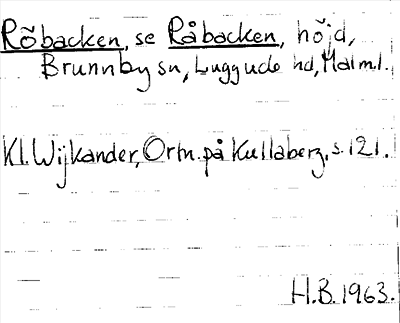 Röbacken, se Råbacken, höjd,
Brunnby sn, Luggude hd, Malml.
Kl. Wijkander, Ortn. på Kullaberg, s. 121.
H.B. 1963.